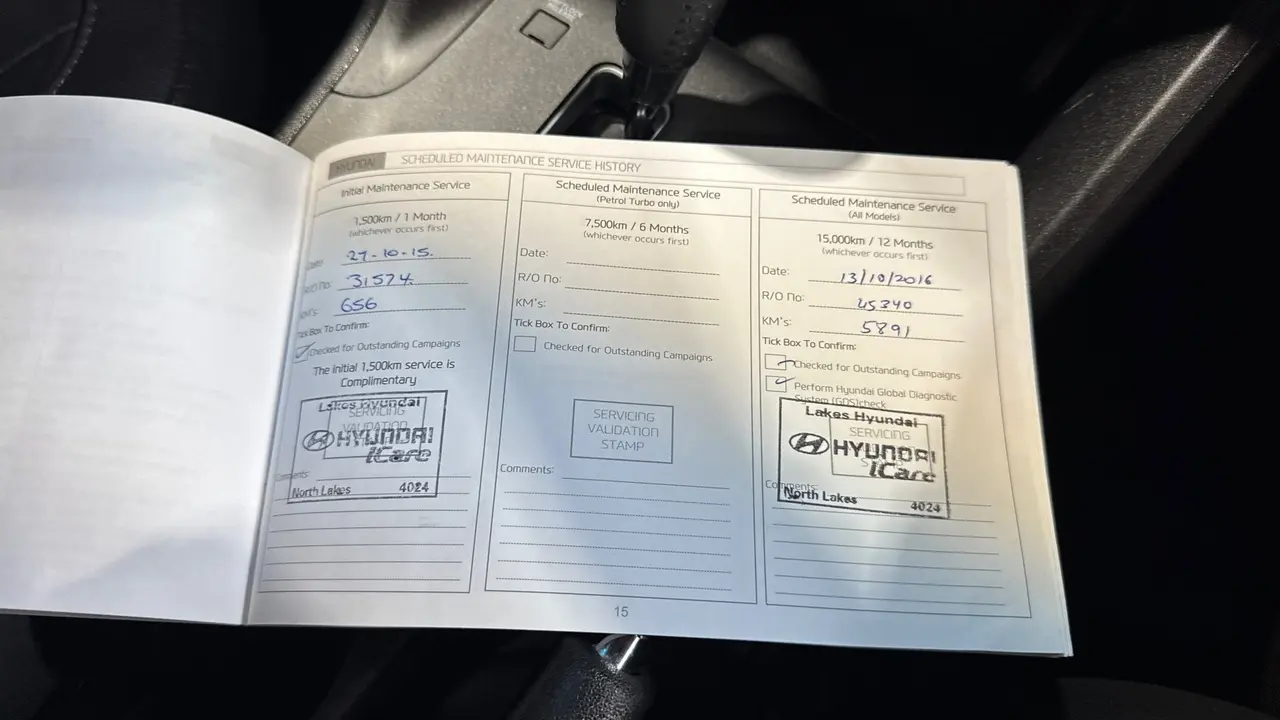 HYUNDAI SCHEDULED MAINTENANCE SERVICE HISTORY
Initial Maintenance Service
1,500km / 1 Month
(whichever occurs first)
Date: 27-10-15.
R/O No: 31574
KM's: 656
Tick Box To Confirm:
Checked for Outstanding Campaigns
The initial 1,500km service is
Complimentary
Lakes Hyundai
SERVICING
VALIDATION
HYUNDAI
iCare
Comments:
North Lakes 4024
Scheduled Maintenance Service
(Petrol Turbo only)
7,500km / 6 Months
(whichever occurs first)
Date:
R/O No:
KM's:
Tick Box To Confirm:
Checked for Outstanding Campaigns
SERVICING
VALIDATION
STAMP
Comments:
Scheduled Maintenance Service
(All Models)
15,000km / 12 Months
(whichever occurs first)
Date: 13/10/2016
R/O No: 45340
KM's: 5891
Tick Box To Confirm:
Checked for Outstanding Campaigns
Perform Hyundai Global Diagnostic
System (GDS)check
Lakes Hyundai
SERVICING
HYUNDAI
iCare
Comments:
North Lakes
4024
15